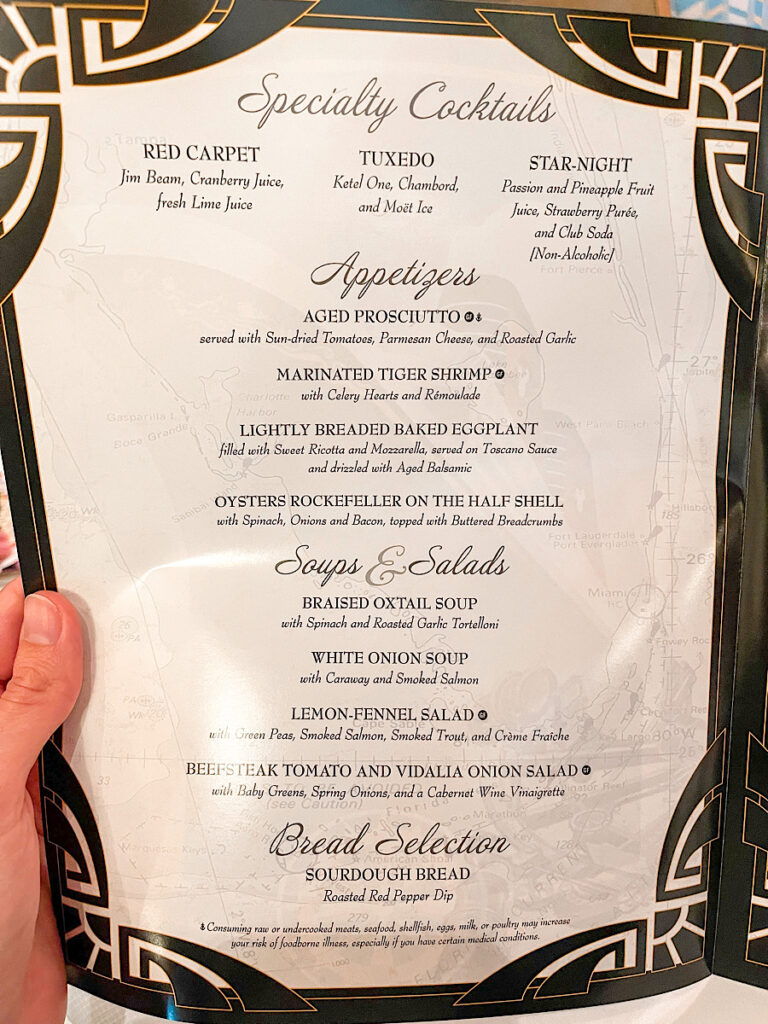 Specialty Cocktails
RED CARPET
Jim Beam, Cranberry Juice,
fresh Lime Juice
TUXEDO
Ketel One, Chambord,
and Moët Ice
STAR-NIGHT
Passion and Pineapple Fruit
Juice, Strawberry Purée,
and Club Soda
[Non-Alcoholic]
Appetizers
AGED PROSCIUTTO GF
served with Sun-dried Tomatoes, Parmesan Cheese, and Roasted Garlic
MARINATED TIGER SHRIMP GF
with Celery Hearts and Rémoulade
LIGHTLY BREADED BAKED EGGPLANT
filled with Sweet Ricotta and Mozzarella, served on Toscano Sauce
and drizzled with Aged Balsamic
OYSTERS ROCKEFELLER ON THE HALF SHELL
with Spinach, Onions and Bacon, topped with Buttered Breadcrumbs
Soups & Salads
BRAISED OXTAIL SOUP
with Spinach and Roasted Garlic Tortelloni
WHITE ONION SOUP
with Caraway and Smoked Salmon
LEMON-FENNEL SALAD GF
with Green Peas, Smoked Salmon, Smoked Trout, and Crème Fraîche
BEEFSTEAK TOMATO AND VIDALIA ONION SALAD GF
with Baby Greens, Spring Onions, and a Cabernet Wine Vinaigrette
Bread Selection
SOURDOUGH BREAD
Roasted Red Pepper Dip
Consuming raw or undercooked meats, seafood, shellfish, eggs, milk, or poultry may increase
your risk of foodborne illness, especially if you have certain medical conditions.
Tampa
Fort Pierce
27°
Jupiter
Charlotte
Harbor
Gasparilla I.
Boca Grande
West Palm Beach
Hillsboro
185
Fort Lauderdale
Port Everglades
26°
Miami
Fowey Roc
Cape Sable
Largo
(see Caution)
Florida
Marathon
Alligator Reef
Marquesas Keys
American Shoal
1287
279
1000